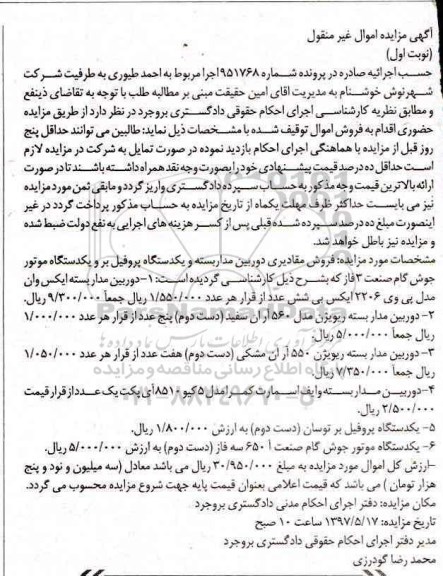 آگهی مزایده اموال غیر منقول
(نوبت اول)
حسب اجرائیه صادره در پرونده شماره ۹۵۱۷۶۸ اجرا مربوط به احمد طیوری به طرفیت شرکت
شهرنوش خوشنام به مدیریت اقای امین حقیقت مبنی بر مطالبه طلب با توجه به تقاضای ذینفع
و مطابق نظریه کارشناسی اجرای احکام حقوقی دادگستری بروجرد در نظر دارد از طریق مزایده
حضوری اقدام به فروش اموال توقیف شده با مشخصات ذیل نماید: طالبین می توانند حداقل پنج
روز قبل از مزایده با هماهنگی اجرای احکام بازدید نموده در صورت تمایل به شرکت در مزایده لازم
است حداقل ده درصد قیمت پیشنهادی خود را بصورت وجه نقد همراه داشته باشند تا در صورت
ارائه بالاترین قیمت وجه مذکور به حساب سپرده دادگستری واریز گردد و مابقی ثمن مورد مزایده
نیز می بایست حداکثر ظرف مهلت یکماه از تاریخ مزایده به حساب مذکور پرداخت گردد در غیر
اینصورت مبلغ ده درصد سپرده شده قبلی پس از کسر هزینه های اجرایی به نفع دولت ضبط شده
و مزایده نیز باطل خواهد شد.
مشخصات مورد مزایده: فروش مقادیری دوربین مداربسته و یکدستگاه پروفیل بر و یکدستگاه موتور
جوش گام صنعت ۳ فاز که بشرح ذیل کارشناسی گردیده است: ۱- دوربین مداربسته ایکس وان
مدل پی وی ۲۲۰۶ ایکس بی شش عدد از قرار هر عدد ۱/۵۵۰/۰۰۰ ریال جمعاً ۹/۳۰۰/۰۰۰ ریال.
۲- دوربین مدار بسته ریویژن مدل ۵۶۰ آر ان سفید (دست دوم) پنج عدد از قرار هر عدد ۱/۰۰۰/۰۰۰
ریال جمعاً ۵/۰۰۰/۰۰۰ ریال.
۳- دوربین مدار بسته ریویژن ۵۵۰ آر ان مشکی (دست دوم) هفت عدد از قرار هر عدد ۱/۰۵۰/۰۰۰
ریال جمعاً ۷/۳۵۰/۰۰۰ ریال.
۴- دوربین مدار بسته وایف اسمارت کمرا مدل ۵ کیو ۸۵۱۰ آی پکت یک عدد از قرار قیمت
۲/۵۰۰/۰۰۰ ریال.
۵- یکدستگاه پروفیل بر توسان (دست دوم) به ارزش ۱/۸۰۰/۰۰۰ ریال.
۶- یکدستگاه موتور جوش گام صنعت آ ۶۵۰ سه فاز (دست دوم) به ارزش ۵/۰۰۰/۰۰۰ ریال.
-ارزش کل اموال مورد مزایده به مبلغ ۳۰/۹۵۰/۰۰۰ ریال می باشد معادل (سه میلیون و نود و پنج
هزار تومان) می باشد که قیمت اعلامی بعنوان قیمت پایه جهت شروع مزایده محسوب می گردد.
مکان مزایده: دفتر اجرای احکام مدنی دادگستری بروجرد
تاریخ مزایده: ۱۳۹۷/۵/۱۷ ساعت ۱۰ صبح
مدیر دفتر اجرای احکام حقوقی دادگستری بروجرد
محمد رضا گودرزی